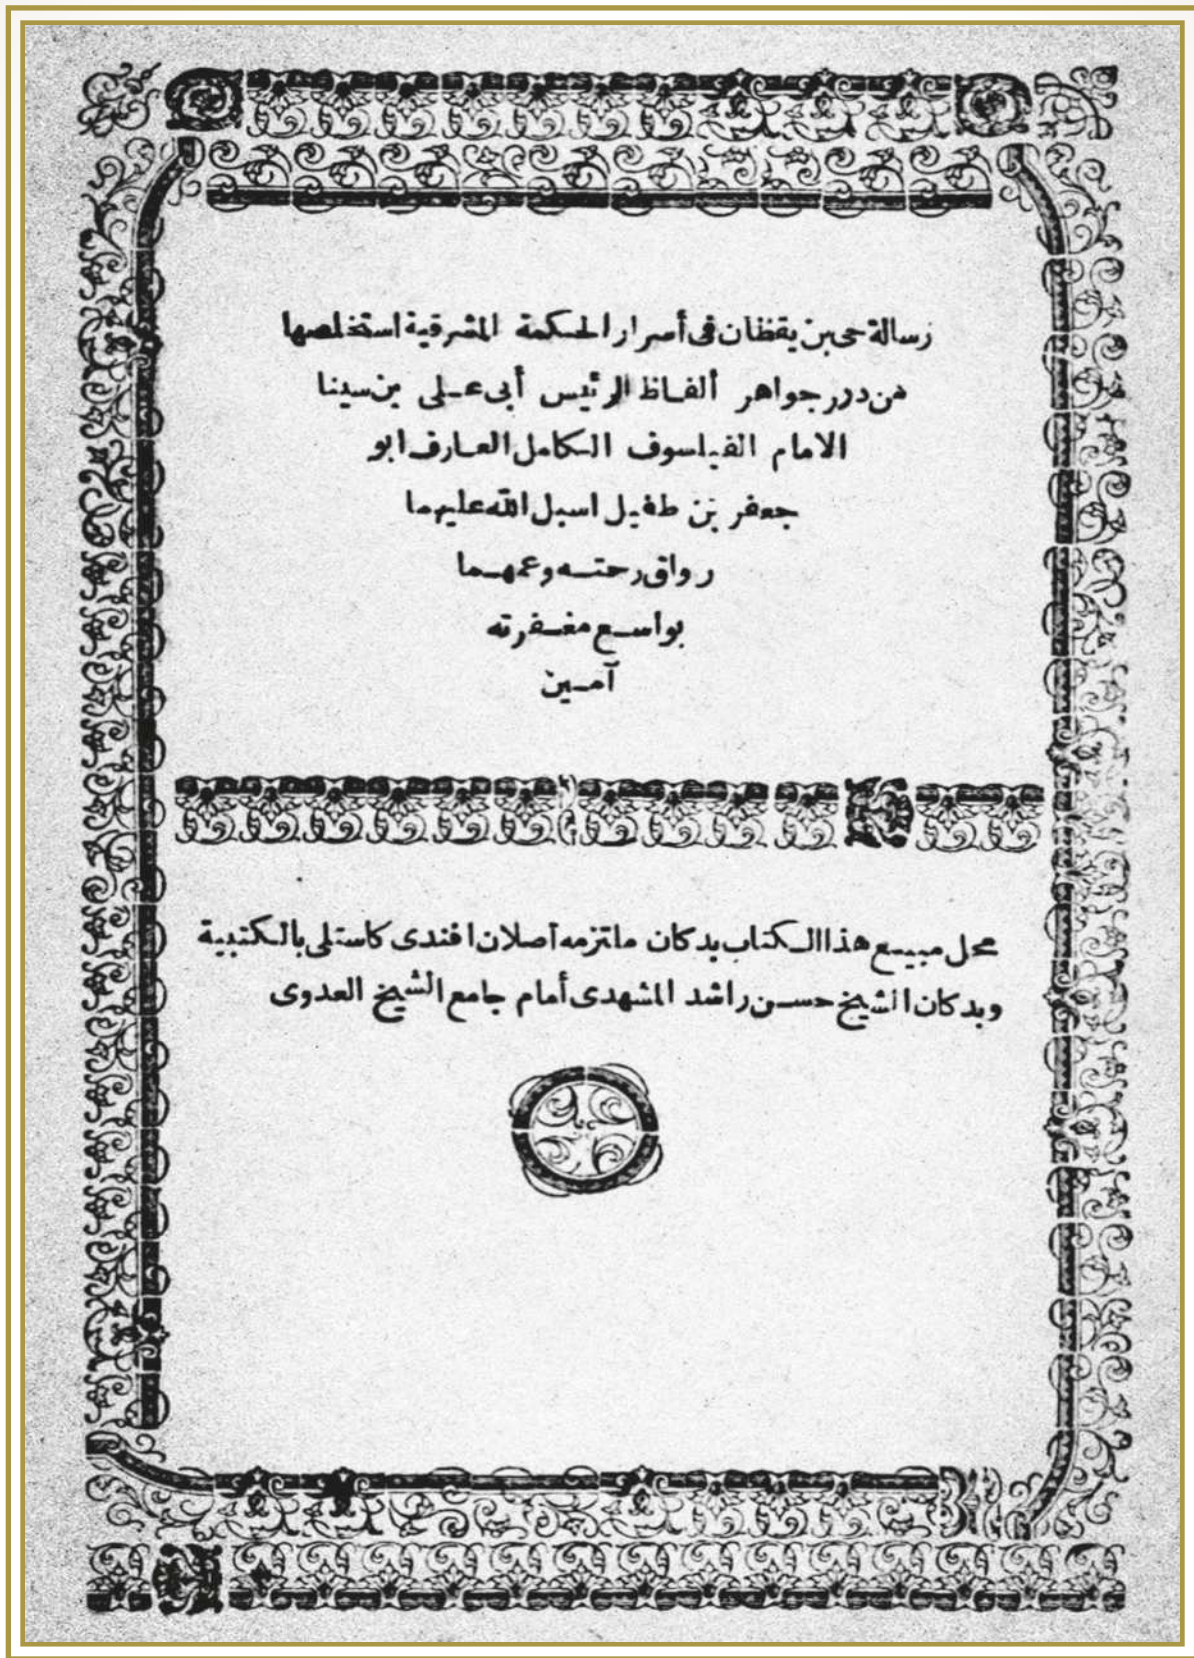 رسالة حى بن يقظان فى أسرار الحكمة المشرقية استخلصها
من درر جواهر ألفاظ الرئيس أبى على بن سينا
الامام الفيلسوف الكامل العارف ابو
جعفر بن طفيل اسبل الله عليهما
رواق رحمته وعمهما
بواسع مغفرته
آمين
محل مبيع هذا الكتاب بدكان ملتزمه أصلان افندى كاستلى بالكتبية
وبدكان الشيخ حسن راشد المشهدى أمام جامع الشيخ العدوى